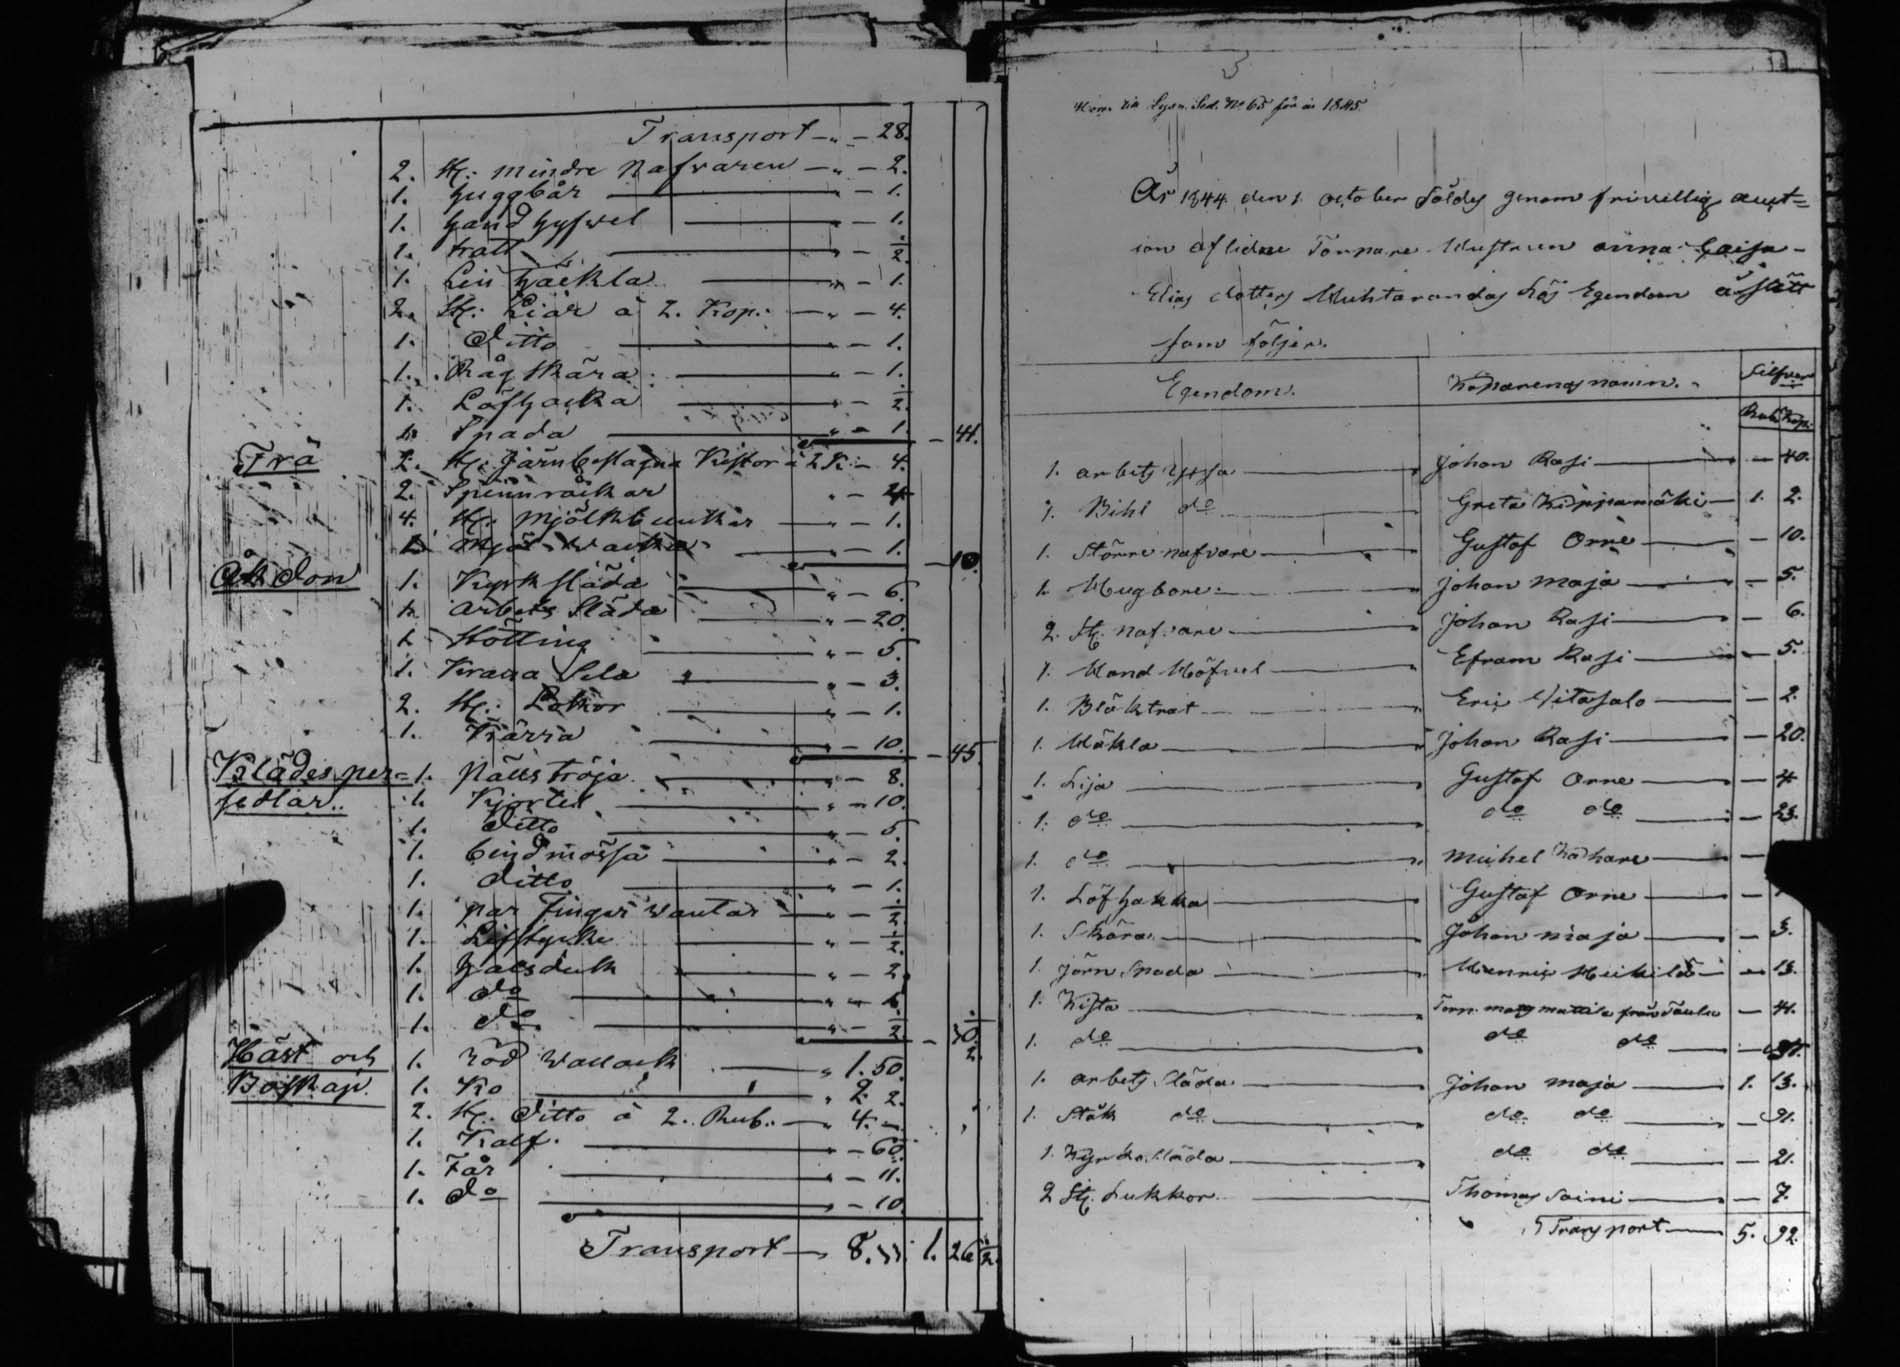 Transport — „ — 28.
2. St: mindre Nafvaren — „ — 2.
1. huggbår — „ — 1.
1. handhyfvel — „ — 1.
1. tratt — „ — ½
1. Lin häckla — „ — 1.
2. St: Liär à 2. Kop: — „ — 4.
1. Ditto — „ — 1.
1. Rågskära — „ — 1.
1. Löfhacka — „ — ½
1. Spada — „ — 1. — 41.
Trä 2. St: Järnbeslagna Kistor à 2 K: — 4.
2. Spinnråckar „ — 4
4. St: Mjölkbunkar — „ — 1.
1. Mjöl — „ — 1. — 10.
Åkdon 1. Kyrk släda — „ — 6.
1. Arbets Släda — „ — 20.
1. Stötting — „ — 5.
1. Sela — „ — 3.
2. St: — „ — 1.
1. Kärra — „ — 10. — 45.
Klädesper= 1. Pällströja — „ — 8.
sedlar.. 1. Kjortel — „ — 10.
1. Ditto — „ — 5.
1. bindmössa — „ — 2.
1. Ditto — „ — 1.
1. par Finger vantar — „ — ½
1. Lifstycke — „ — ½
1. halsduk — „ — 2.
1. do — „ —
1. do — „ — ½ — 30. ½
Häst och 1. röd Wallack — „ 1. 50.
Boskap. 1. Ko — „ 2. 2.
2. St: Ditto à 2. Rub.. — „ 4. –
1. Kalf. — „ — 60.
1. Får — „ — 11.
1. do — „ — 10
Transport — 8. 1. 26 ½
3
År 1844 den 1 october såldes genom frivillig auct=
ion aflidne Torpare Hustrun Anna Caisa
Elias dotters lös Egendom
som följer.
Egendom. Köparenas namn. Silfver
Rub Kop:
1. arbets yxa — Johan Rasi — — 40.
1. Bihl do — Greta — 1. 2.
1. Större nafvare — Gustaf Orne — — 10.
1. Hugbore: — Johan Maja — — 5.
2. St. nafvare — Johan Rasi — — 6.
1. Hand Höfvel — Efram Rasi — — 5.
1. Bläktrat — Eric — — 2.
1. Häkla — Johan Rasi — — 20.
1. Lija — Gustaf Orne — — 4
1. do — do do — — 23.
1. do — Michel —
1. Löfhakka — Gustaf Orne —
1. Skära — Johan Maja — — 3.
1. Järn Spada — Henric Heikilä — — 13.
1. Kista — Torp. Mattila från — 41.
1. do — do do —
1. arbets Släda — Johan Maja — 1. 13.
1. Ståk do — do do — — 91.
1. Kyrko Släda — do do — — 21.
2 St. Lukkor — Thomas Saini — — 7.
Transport — 5. 92.